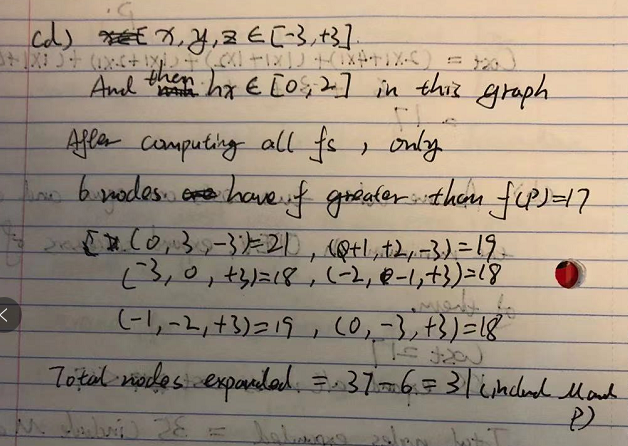 (d) x, y, z ∈ [-3, +3]
And then hx ∈ [0, 2] in this graph
After computing all fs, only
6 nodes have f greater than f(P)=17
(0, 3, -3)=21, (+1, +2, -3)=19
(-3, 0, +3)=18, (-2, -1, +3)=18
(-1, -2, +3)=19, (0, -3, +3)=18
Total nodes expanded = 37-6=31 (includ M and
P)